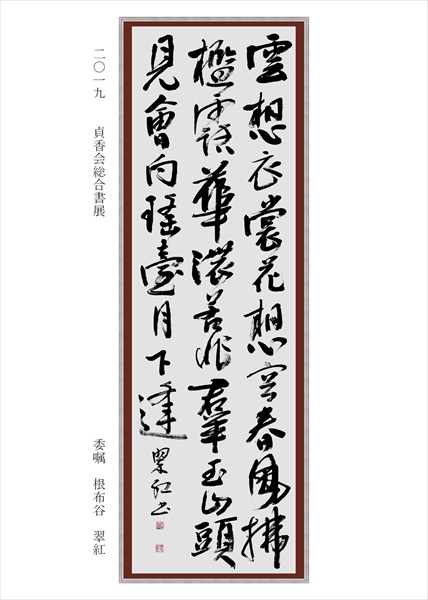 雲想衣裳花想容春風拂
檻露華濃若非羣玉山頭
見會向瑤臺月下逢 翠紅書
二〇一九 貞香会総合書展
委嘱 根布谷 翠紅